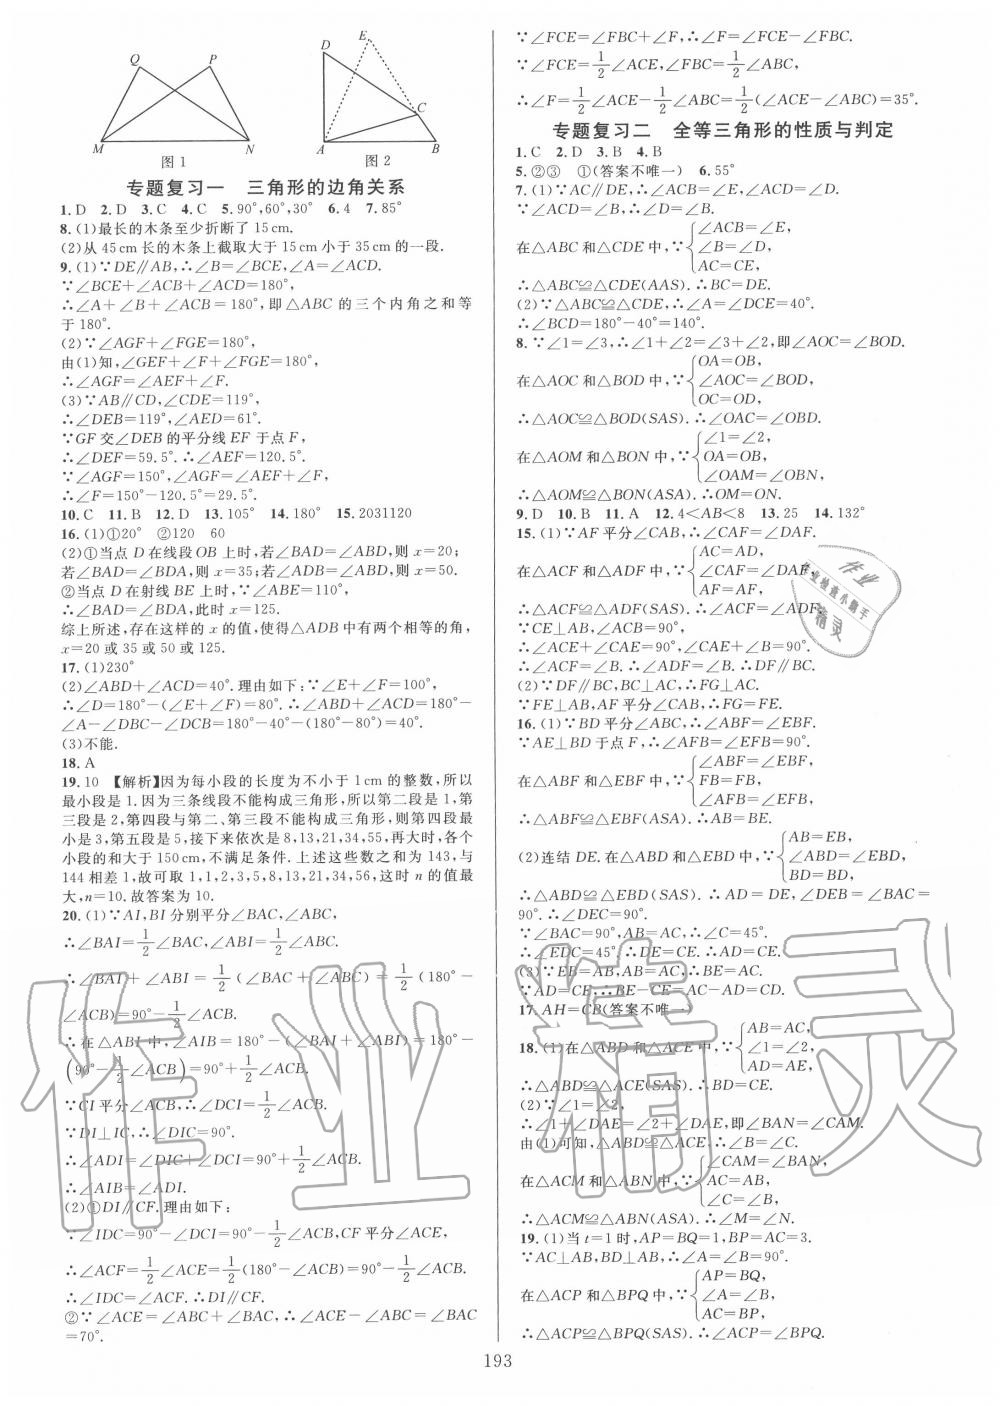 Q
P
M
N
图1
D
E
C
A
B
图2
专题复习一 三角形的边角关系
1. D 2. D 3. C 4. C 5. 90°,60°,30° 6. 4 7. 85°
8. (1)最长的木条至少折断了15cm.
(2)从45cm长的木条上截取大于15cm小于35cm的一段.
9. (1)∵DE∥AB,∴∠B=∠BCE,∠A=∠ACD.
∵∠BCE+∠ACB+∠ACD=180°,
∴∠A+∠B+∠ACB=180°,即△ABC的三个内角之和等
于180°.
(2)∵∠AGF+∠FGE=180°,
由(1)知,∠GEF+∠F+∠FGE=180°,
∴∠AGF=∠AEF+∠F.
(3)∵AB∥CD,∠CDE=119°,
∴∠DEB=119°,∠AED=61°.
∵GF交∠DEB的平分线EF于点F,
∴∠DEF=59.5°.∴∠AEF=120.5°.
∵∠AGF=150°,∠AGF=∠AEF+∠F,
∴∠F=150°-120.5°=29.5°.
10. C 11. B 12. D 13. 105° 14. 180° 15. 2031120
16. (1)①20° ②120 60
(2)①当点D在线段OB上时,若∠BAD=∠ABD,则x=20;
若∠BAD=∠BDA,则x=35;若∠ADB=∠ABD,则x=50.
②当点D在射线BE上时,∵∠ABE=110°,
∴∠BAD=∠BDA,此时x=125.
综上所述,存在这样的x的值,使得△ADB中有两个相等的角,
x=20或35或50或125.
17. (1)230°
(2)∠ABD+∠ACD=40°.理由如下:∵∠E+∠F=100°,
∴∠D=180°-(∠E+∠F)=80°.∴∠ABD+∠ACD=180°-
∠A-∠DBC-∠DCB=180°-40°-(180°-80°)=40°.
(3)不能.
18. A
19. 10 【解析】因为每小段的长度为不小于1cm的整数,所以
最小段是1.因为三条线段不能构成三角形,所以第二段是1,第
三段是2,第四段与第二、第三段不能构成三角形,则第四段最
小是3,第五段是5,接下来依次是8,13,21,34,55,再大时,各个
小段的和大于150cm,不满足条件.上述这些数之和为143,与
144相差1,故可取1,1,2,3,5,8,13,21,34,56,这时n的值最
大,n=10.故答案为10.
20. (1)∵AI,BI分别平分∠BAC,∠ABC,
∴∠BAI=1/2∠BAC,∠ABI=1/2∠ABC.
∴∠BAI+∠ABI=1/2(∠BAC+∠ABC)=1/2(180°-
∠ACB)=90°-1/2∠ACB.
∴在△ABI中,∠AIB=180°-(∠BAI+∠ABI)=180°-
(90°-1/2∠ACB)=90°+1/2∠ACB.
∵CI平分∠ACB,∴∠DCI=1/2∠ACB.
∵DI⊥IC,∴∠DIC=90°.
∴∠ADI=∠DIC+∠DCI=90°+1/2∠ACB.
∴∠AIB=∠ADI.
(2)①DI∥CF.理由如下:
∵∠IDC=90°-∠DCI=90°-1/2∠ACB,CF平分∠ACE,
∴∠ACF=1/2∠ACE=1/2(180°-∠ACB)=90°-1/2∠ACB.
∴∠IDC=∠ACF.∴DI∥CF.
②∵∠ACE=∠ABC+∠BAC,∴∠ACE-∠ABC=∠BAC
=70°.
∵∠FCE=∠FBC+∠F,∴∠F=∠FCE-∠FBC.
∵∠FCE=1/2∠ACE,∠FBC=1/2∠ABC,
∴∠F=1/2∠ACE-1/2∠ABC=1/2(∠ACE-∠ABC)=35°.
专题复习二 全等三角形的性质与判定
1. C 2. D 3. B 4. B
5. ②③ ①(答案不唯一) 6. 55°
7. (1)∵AC∥DE,∴∠ACB=∠E,∠ACD=∠D.
∵∠ACD=∠B,∴∠D=∠B.
在△ABC和△CDE中,∵{∠ACB=∠E,
∠B=∠D,
AC=CE,
∴△ABC≌△CDE(AAS).∴BC=DE.
(2)∵△ABC≌△CDE,∴∠A=∠DCE=40°.
∴∠BCD=180°-40°=140°.
8. ∵∠1=∠3,∴∠1+∠2=∠3+∠2,即∠AOC=∠BOD.
在△AOC和△BOD中,∵{OA=OB,
∠AOC=∠BOD,
OC=OD,
∴△AOC≌△BOD(SAS).∴∠OAC=∠OBD.
在△AOM和△BON中,∵{∠1=∠2,
OA=OB,
∠OAM=∠OBN,
∴△AOM≌△BON(ASA).∴OM=ON.
9. D 10. B 11. A 12. 4<AB<8 13. 25 14. 132°
15. (1)∵AF平分∠CAB,∴∠CAF=∠DAF.
在△ACF和△ADF中,∵{AC=AD,
∠CAF=∠DAF,
AF=AF,
∴△ACF≌△ADF(SAS).∴∠ACF=∠ADF.
∵CE⊥AB,∠ACB=90°,
∴∠ACE+∠CAE=90°,∠CAE+∠B=90°.
∴∠ACF=∠B.∴∠ADF=∠B.∴DF∥BC.
(2)∵DF∥BC,BC⊥AC,∴FG⊥AC.
∵FE⊥AB,AF平分∠CAB,∴FG=FE.
16. (1)∵BD平分∠ABC,∴∠ABF=∠EBF.
∵AE⊥BD于点F,∴∠AFB=∠EFB=90°.
在△ABF和△EBF中,∵{∠ABF=∠EBF,
FB=FB,
∠AFB=∠EFB,
∴△ABF≌△EBF(ASA).∴AB=BE.
(2)连结DE.在△ABD和△EBD中,∵{AB=EB,
∠ABD=∠EBD,
BD=BD,
∴△ABD≌△EBD(SAS).∴AD=DE,∠DEB=∠BAC=
90°.∴∠DEC=90°.
∵∠BAC=90°,AB=AC,∴∠C=45°.
∴∠EDC=45°.∴DE=CE.∴AD=CE.
(3)∵EB=AB,AB=AC,∴BE=AC.
∵AD=CE,∴BE-CE=AC-AD=CD.
17. AH=CB(答案不唯一)
18. (1)在△ABD和△ACE中,∵{AB=AC,
∠1=∠2,
AD=AE,
∴△ABD≌△ACE(SAS).∴BD=CE.
(2)∵∠1=∠2,
∴∠1+∠DAE=∠2+∠DAE,即∠BAN=∠CAM.
由(1)可知,△ABD≌△ACE,∴∠B=∠C.
在△ACM和△ABN中,∵{∠CAM=∠BAN,
AC=AB,
∠C=∠B,
∴△ACM≌△ABN(ASA).∴∠M=∠N.
19. (1)当t=1时,AP=BQ=1,BP=AC=3.
∵AC⊥AB,BD⊥AB,∴∠A=∠B=90°.
在△ACP和△BPQ中,∵{AP=BQ,
∠A=∠B,
AC=BP,
∴△ACP≌△BPQ(SAS).∴∠ACP=∠BPQ.
作业
作业检查小助手
精灵
作业精灵
193